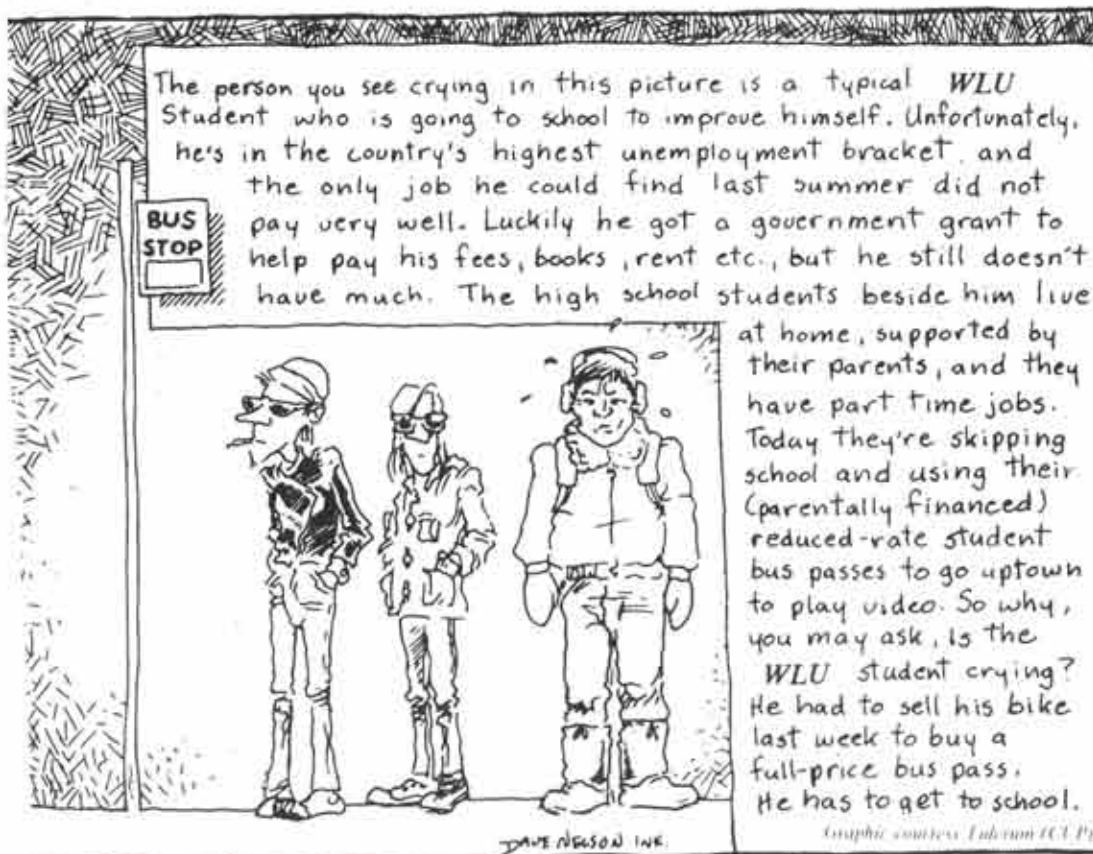 The person you see crying in this picture is a typical WLU
Student who is going to school to improve himself. Unfortunately,
he's in the country's highest unemployment bracket and
the only job he could find last summer did not
pay very well. Luckily he got a government grant to
help pay his fees, books, rent etc., but he still doesn't
have much. The high school students beside him live
at home, supported by
their parents, and they
have part time jobs.
Today they're skipping
school and using their
(parentally financed)
reduced-rate student
bus passes to go uptown
to play video. So why,
you may ask, is the
WLU student crying?
He had to sell his bike
last week to buy a
full-price bus pass.
He has to get to school.
BUS
STOP
DAVE NELSON INK.
Graphic courtesy Fulcrum